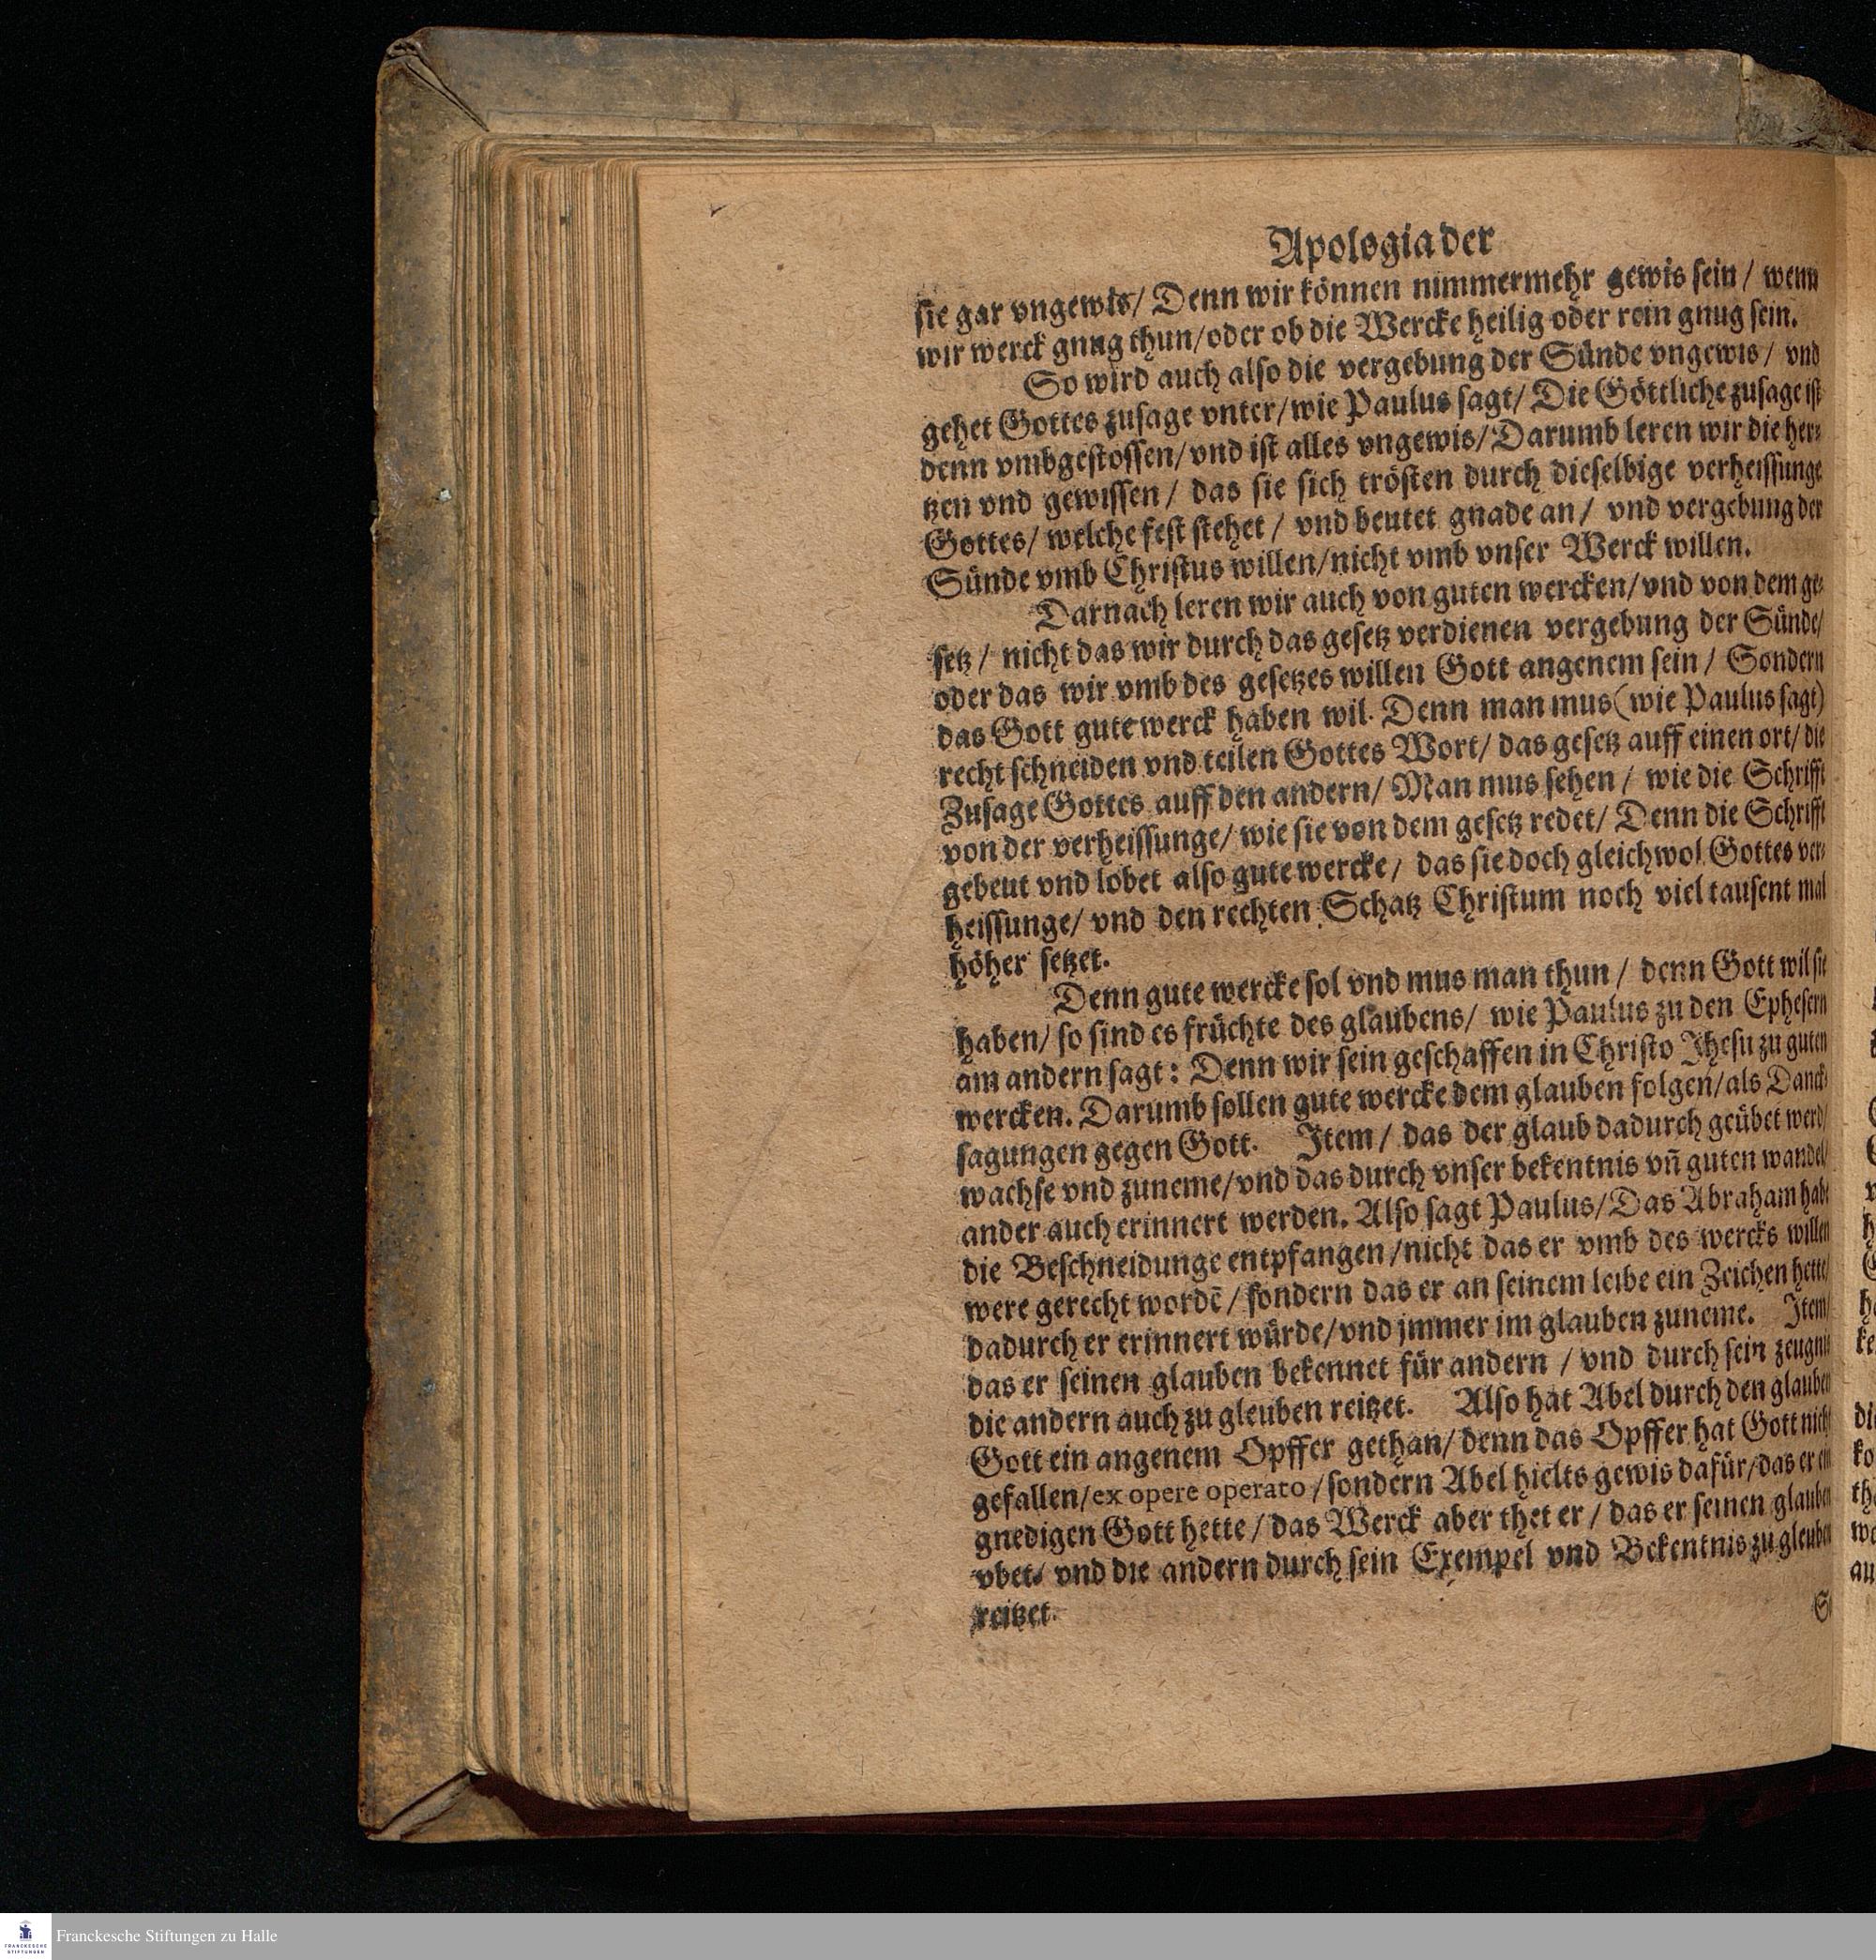 Apologia der
sie gar vngewis/ Denn wir können nimmermehr gewis sein/ wenn
wir werck gnug thun/ oder ob die Wercke heilig oder rein gnug sein.
So wird auch also die vergebung der Sünde vngewis/ vnd
gehet Gottes zusage vnter/ wie Paulus sagt/ Die Göttliche zusage ist
denn vmbgestossen/ vnd ist alles vngewis/ Darumb leren wir die her⸗
tzen vnd gewissen/ das sie sich trösten durch dieselbige verheissunge
Gottes/ welche fest stehet/ vnd beutet gnade an/ vnd vergebung der
Sünde vmb Christus willen/ nicht vmb vnser Werck willen.
Darnach leren wir auch von guten wercken/ vnd von dem ge⸗
setz/ nicht das wir durch das gesetz verdienen vergebung der Sünde/
oder das wir vmb des gesetzes willen Gott angenem sein/ Sondern
das Gott gute werck haben wil. Denn man mus (wie Paulus sagt)
recht schneiden vnd teilen Gottes Wort/ das gesetz auff einen ort/ die
Zusage Gottes auff den andern/ Man mus sehen/ wie die Schrifft
von der verheissunge/ wie sie von dem gesetz redet/ Denn die Schrifft
gebeut vnd lobet also gute wercke/ das sie doch gleichwol Gottes ver⸗
heissunge/ vnd den rechten Schatz Christum noch viel tausent mal
höher setzet.
Denn gute wercke sol vnd mus man thun/ denn Gott wil sie
haben/ so sind es früchte des glaubens/ wie Paulus zu den Ephesern
am andern sagt: Denn wir sein geschaffen in Christo Jhesu zu guten
wercken. Darumb sollen gute wercke dem glauben folgen/ als Danck⸗
sagungen gegen Gott. Item/ das der glaub dadurch geübet werd/
wachse vnd zuneme/ vnd das durch vnser bekentnis vñ guten wandel/
ander auch erinnert werden. Also sagt Paulus/ Das Abraham habe
die Beschneidunge entpfangen/ nicht das er vmb des wercks willen
were gerecht wordē/ sondern das er an seinem leibe ein Zeichen hette/
dadurch er erinnert würde/ vnd jmmer im glauben zuneme. Item/
das er seinen glauben bekennet für andern/ vnd durch sein zeugnis
die andern auch zu gleuben reitzet. Also hat Abel durch den glauben
Gott ein angenem Opffer gethan/ denn das Opffer hat Gott nicht
gefallen/ ex opere operato/ sondern Abel hielts gewis dafür/ das er ein
gnedigen Gott hette/ das Werck aber thet er/ das er seinen glauben
vbet/ vnd die andern durch sein Exempel vnd Bekentnis zu gleuben
reitzet.
Franckesche Stiftungen zu Halle
FRANCKESCHE
STIFTUNGEN